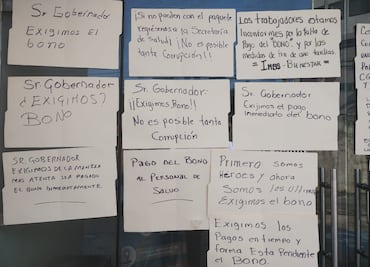 Sr Gobernador
Exigimos el
bono
¡Si no pueden con el paquete
regresenlo a la Secretaria
de Salud! ¡No es posible
tanta Corrupción!!
Los trabajadores estamos
inconformes por la falta de
Pago del "BONO" y por las
medidas de fin de año faltantes.
= Imss-Bienestar =
Sr Gobernador
¿EXIGIMOS?
BONO
Sr. Gobernador:
¡¡Exigimos Bono!!
No es posible tanta
Corrupción
Sr Gobernador
Exijimos el pago
inmediato del bono
SR. GOBERNADOR
EXIGIMOS DE LA MANERA
MAS ATENTA SEA PAGADO
EL BONO INMEDIATAMENTE.
PAGO DEL BONO
AL PERSONAL DE
SALUD
Primero somos
Heroes y ahora
Somos los últimos
Exigimos el bono
Exigimos los
Pagos en tiempo y
forma Esta Pendiente
el Bono.